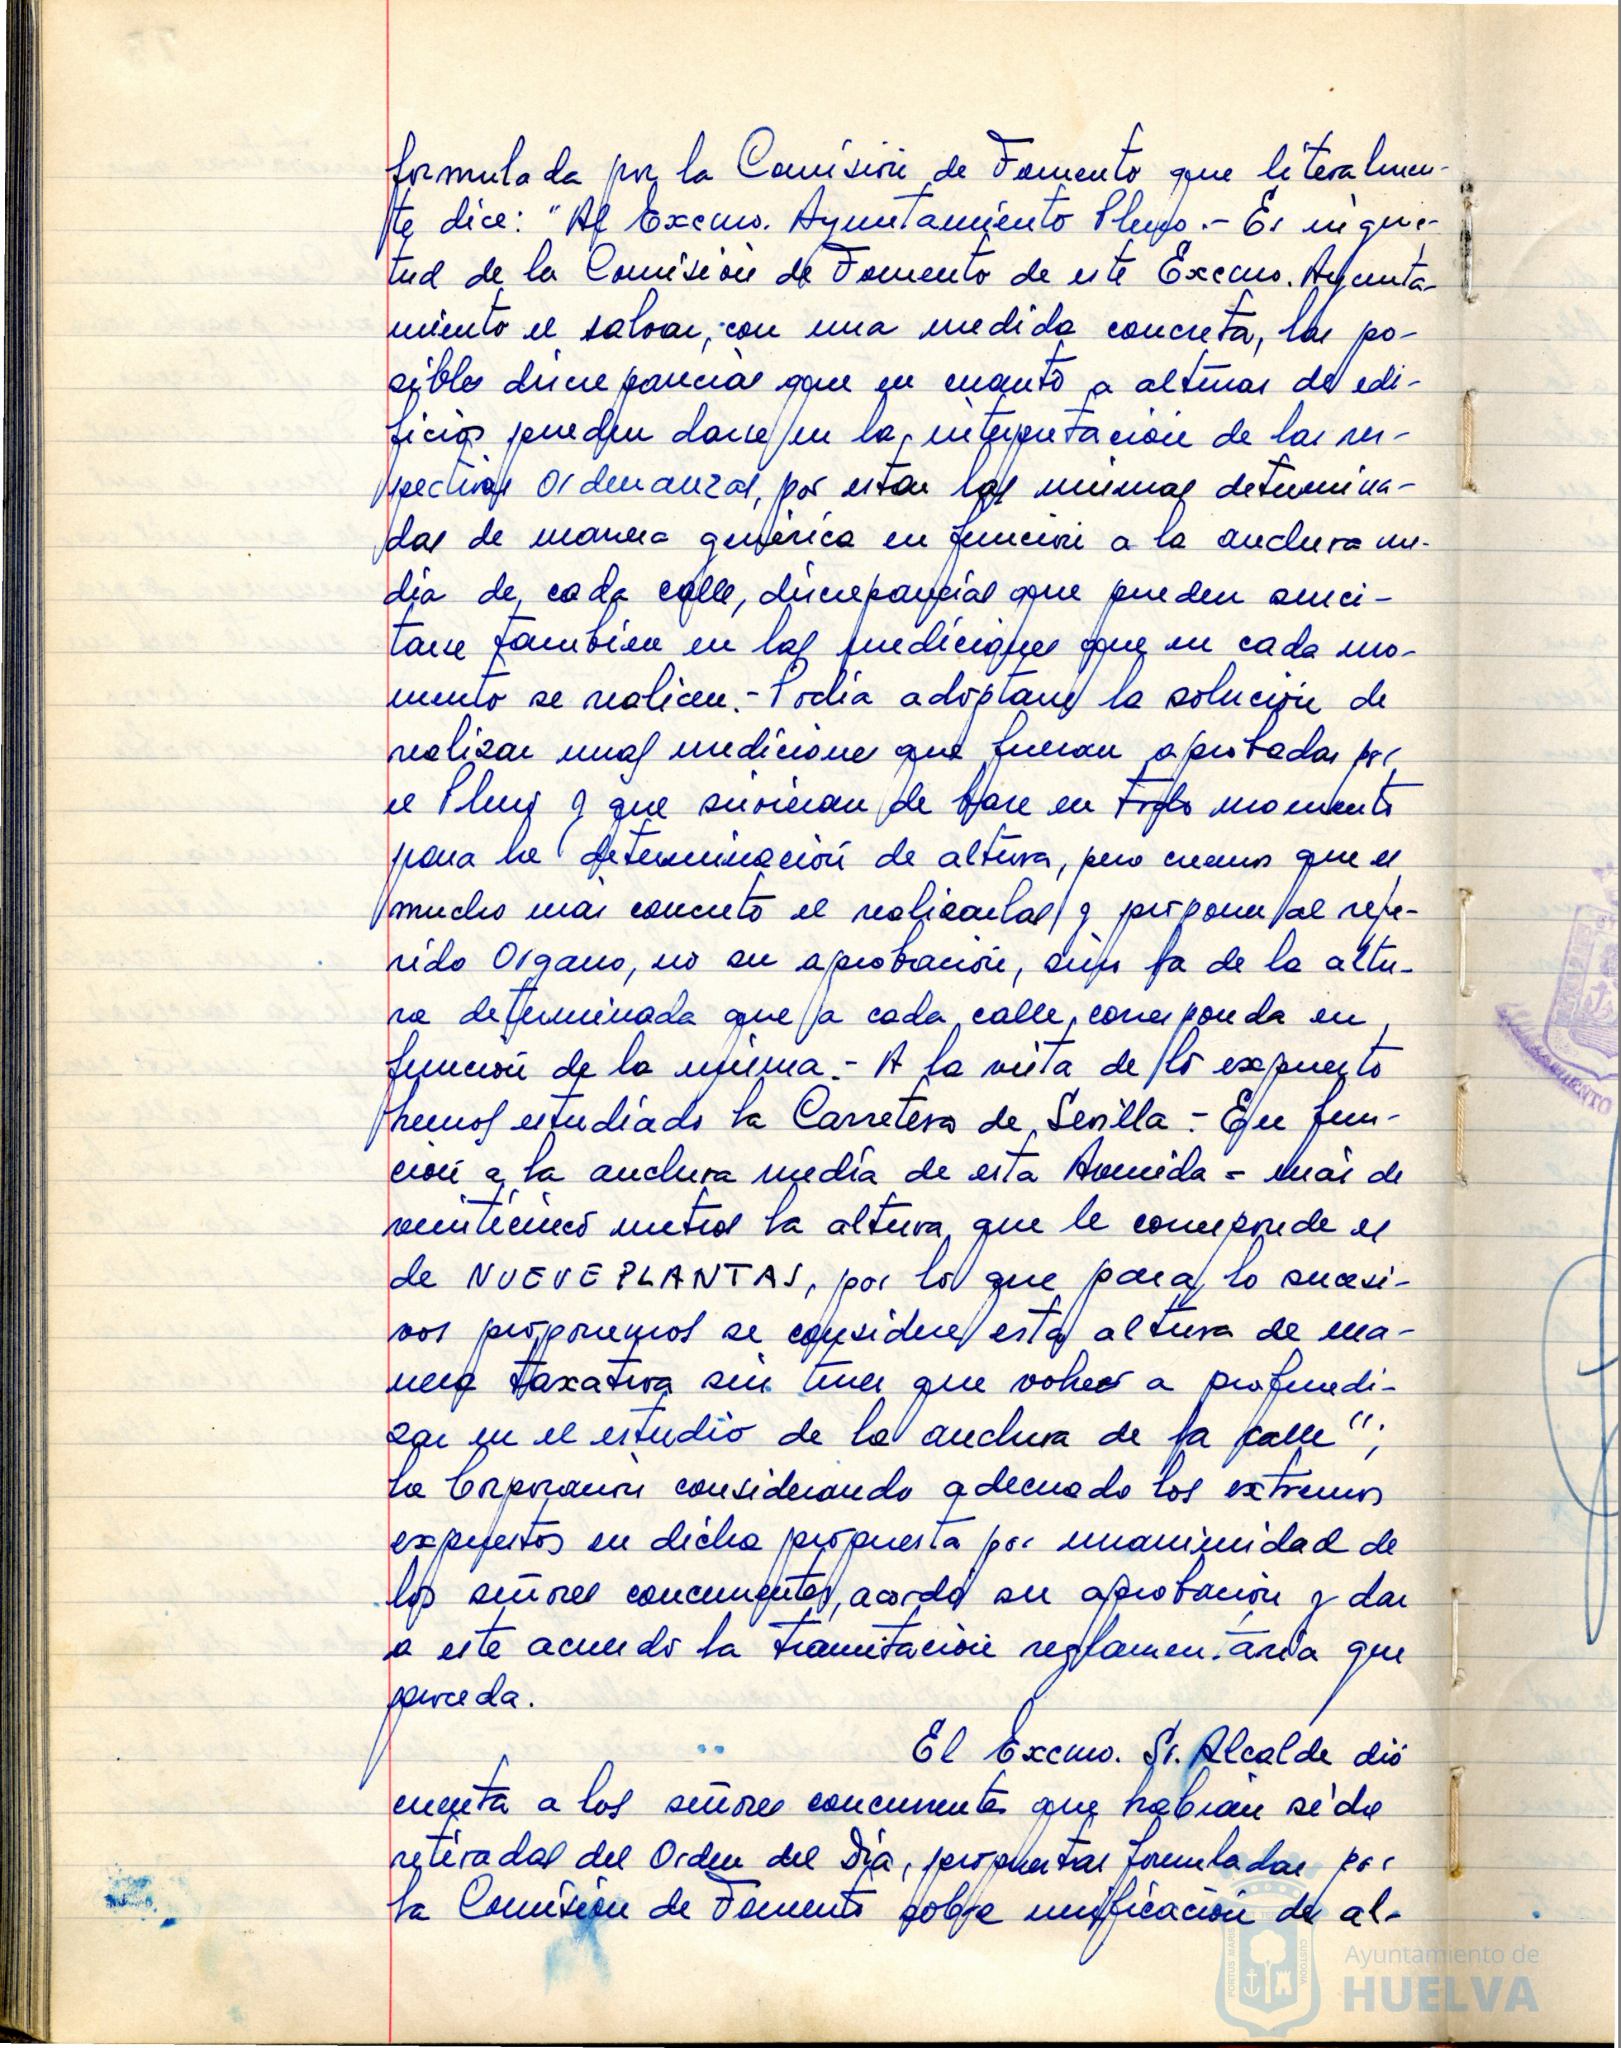 formulada por la Comisión de Fomento que literalmen-
te dice: "Al Excmo. Ayuntamiento Pleno.- Es inquie-
tud de la Comisión de Fomento de este Excmo. Ayunta-
miento el salvar, con una medida concreta, las po-
sibles discrepancias que en cuanto a alturas de edi-
ficios pueden darse en la interpretación de las res-
pectivas Ordenanzas, por estar las mismas determina-
das de manera genérica en función a la anchura me-
dia de cada calle, discrepancias que pueden susci-
tarse también en las mediciones que en cada mo-
mento se realicen.- Podía adoptarse la solución de
realizar unas mediciones que fueran aprobadas por
el Pleno y que sirvieran de base en todo momento
para la determinación de altura, pero creemos que es
mucho más concreto el realizarlas y proponer al refe-
rido Organo, no su aprobación, sino la de la altu-
ra determinada que a cada calle corresponda en
función de la misma.- A la vista de lo expuesto
hemos estudiado la Carretera de Sevilla.- En fun-
ción a la anchura media de esta Avenida - más de
veinticinco metros la altura que le corresponde es
de NUEVE PLANTAS, por lo que para lo sucesi-
vos proponemos se considere esta altura de ma-
nera taxativa sin tener que volver a profundi-
zar en el estudio de la anchura de la calle";
la Corporación considerando adecuado los extremos
expuestos en dicha propuesta por unanimidad de
los señores concurrentes, acordó su aprobación y dar
a este acuerdo la tramitación reglamentaria que
proceda.
El Excmo. Sr. Alcalde dió
cuenta a los señores concurrentes que habían sido
retiradas del Orden del Día, propuestas formuladas por
la Comisión de Fomento sobre unificación de al-
Ayuntamiento de
HUELVA
PORTUS MARIS
CUSTODIA